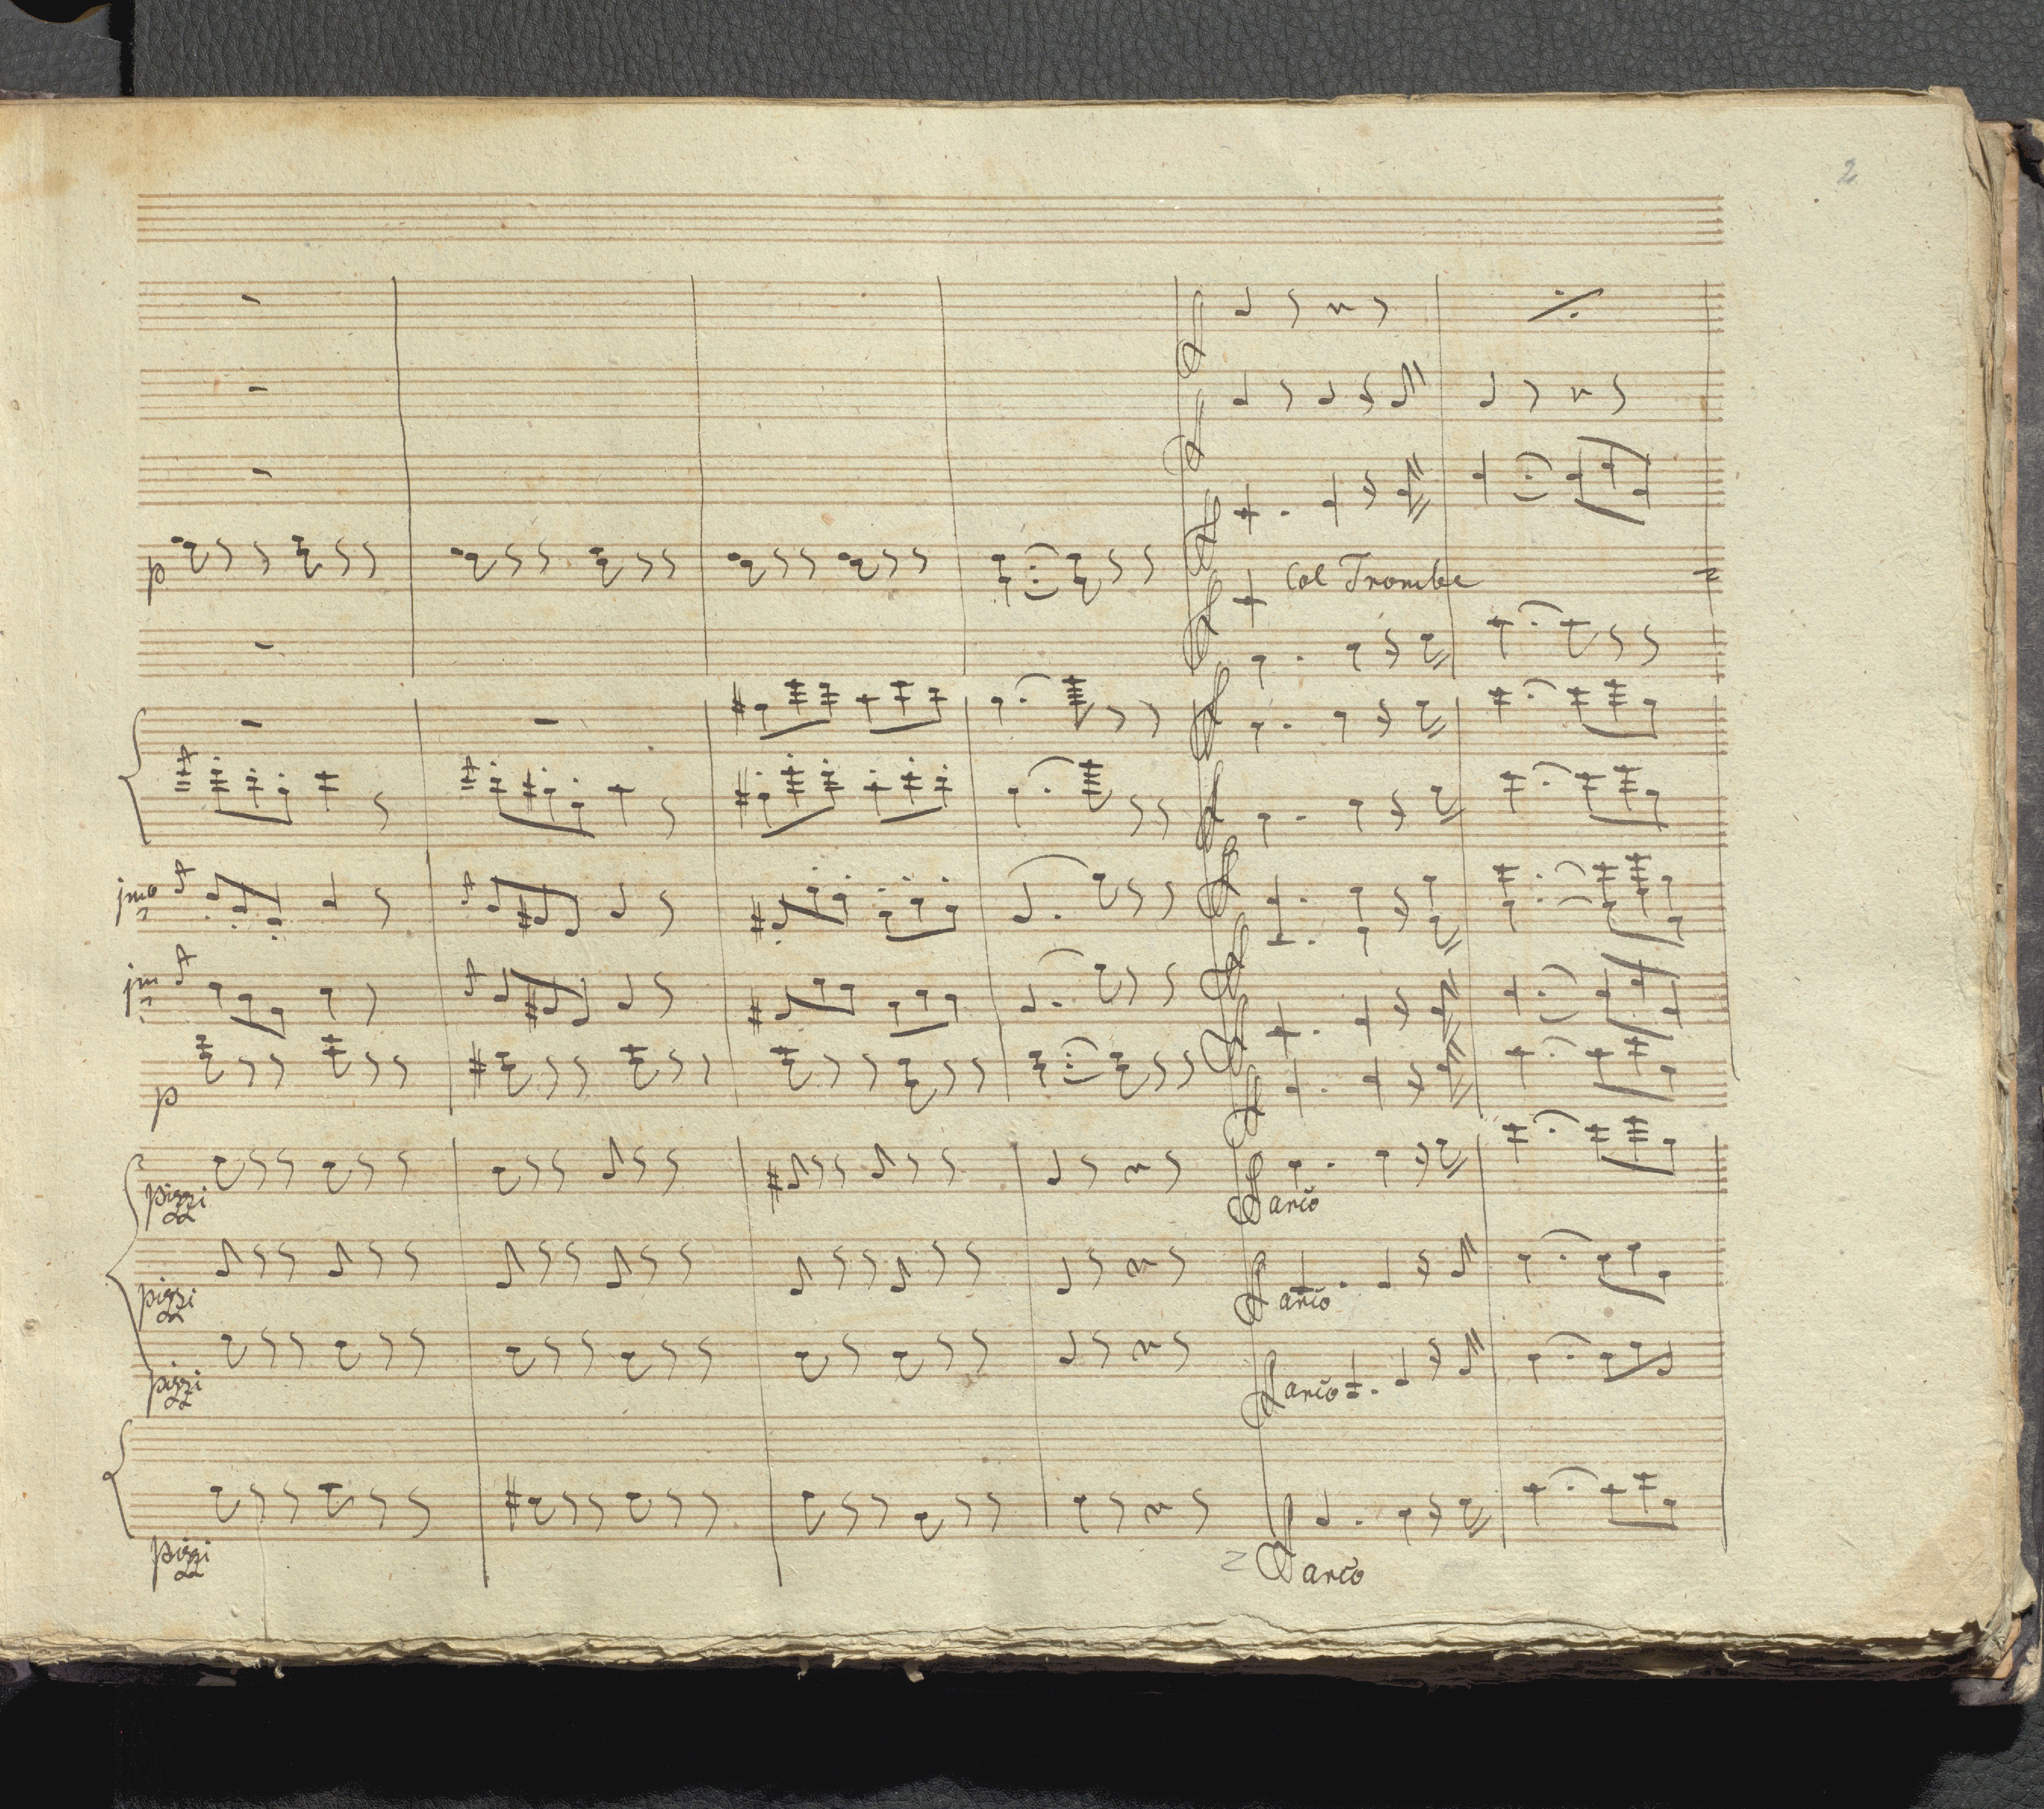 2
p
Col Trombe
jmo
jm
p
pizzi
arco
pizzi
arco
pizzi
arco
pizzi
arco